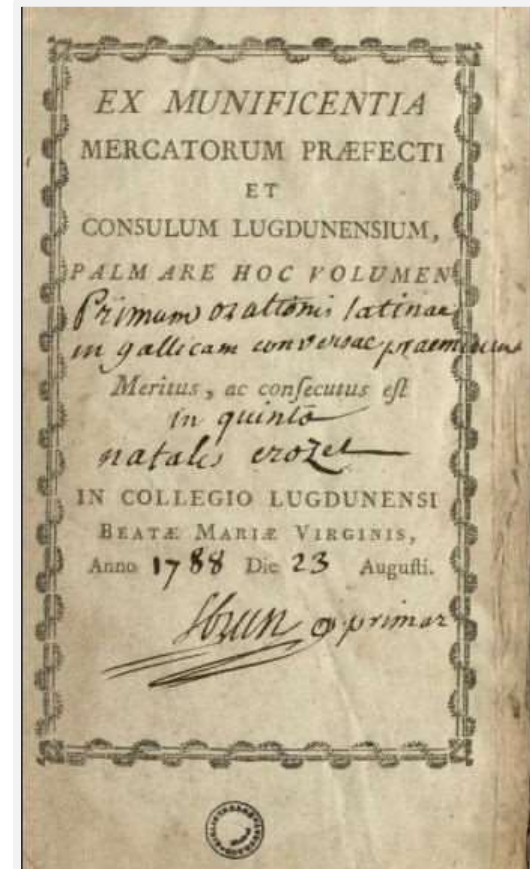 EX MUNIFICENTIA
MERCATORUM PRÆFECTI
ET
CONSULUM LUGDUNENSIUM,
PALMARE HOC VOLUMEN
Primum orationis latinae
in gallicam conversae praemium
Meritus, ac conſecutus eſt
in quinta
natalis crozet
IN COLLEGIO LUGDUNENSI
BEATÆ MARIÆ VIRGINIS,
Anno 1788 Die 23 Auguſti.
primar